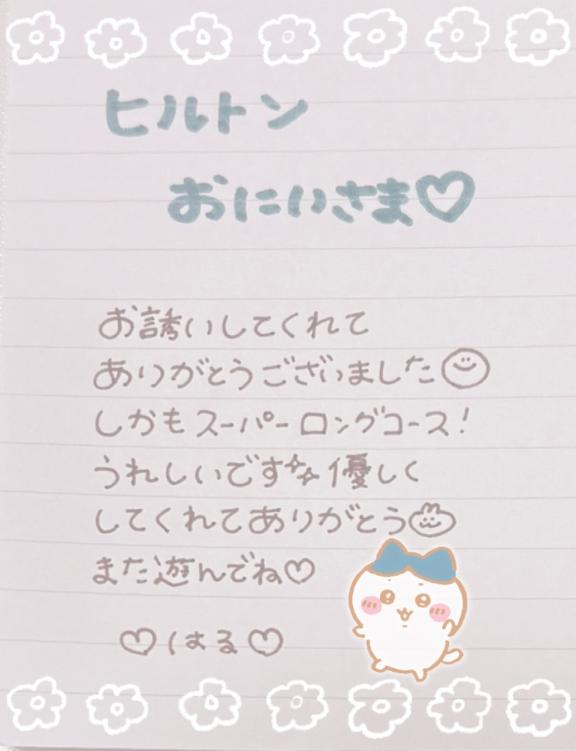 ヒルトン
おにいさま♡
お誘いしてくれて
ありがとうございました
しかもスーパーロングコース!
うれしいです 優しく
してくれてありがとう
また遊んでね♡
♡はる♡